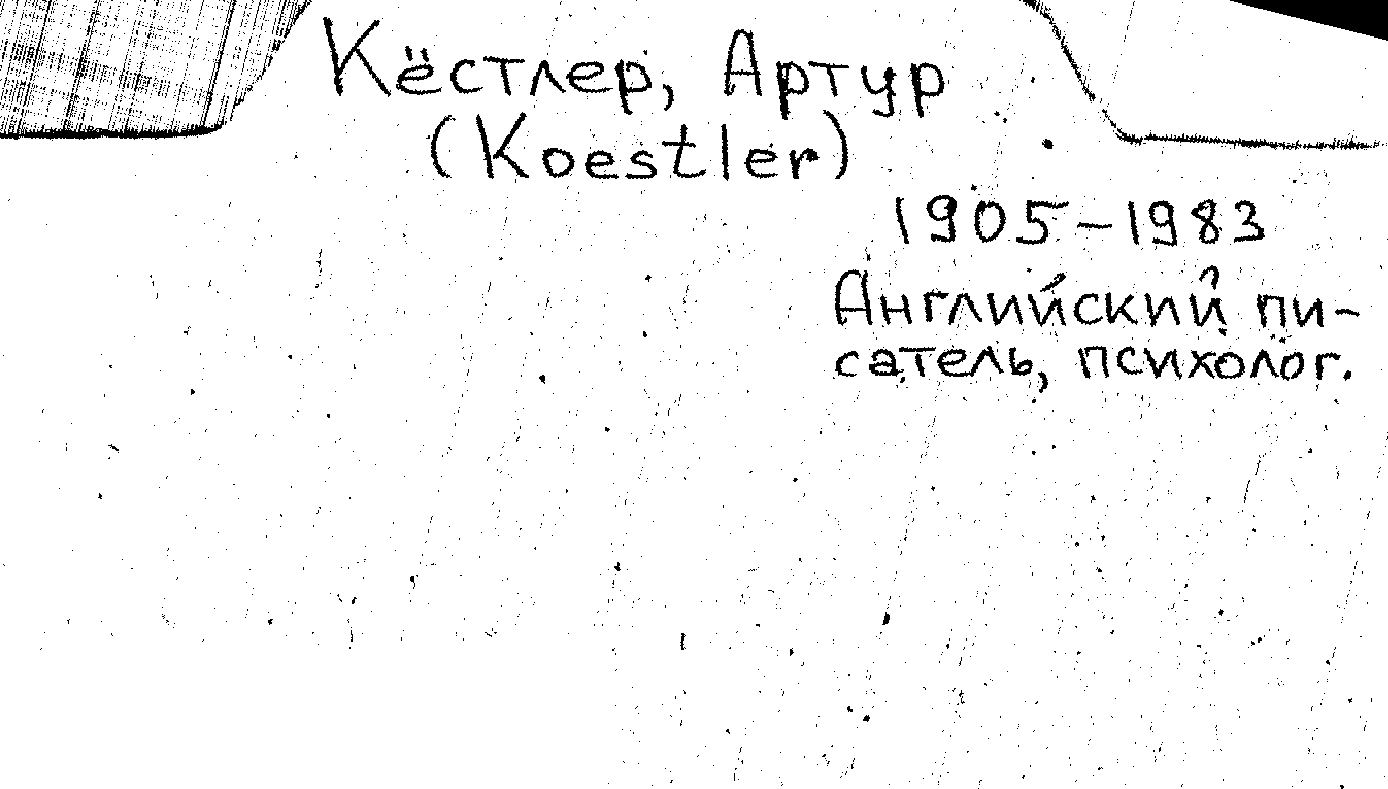 Кёстлер, Артур
(Koestler)
1905-1983
Английский пи-
сатель, психолог.